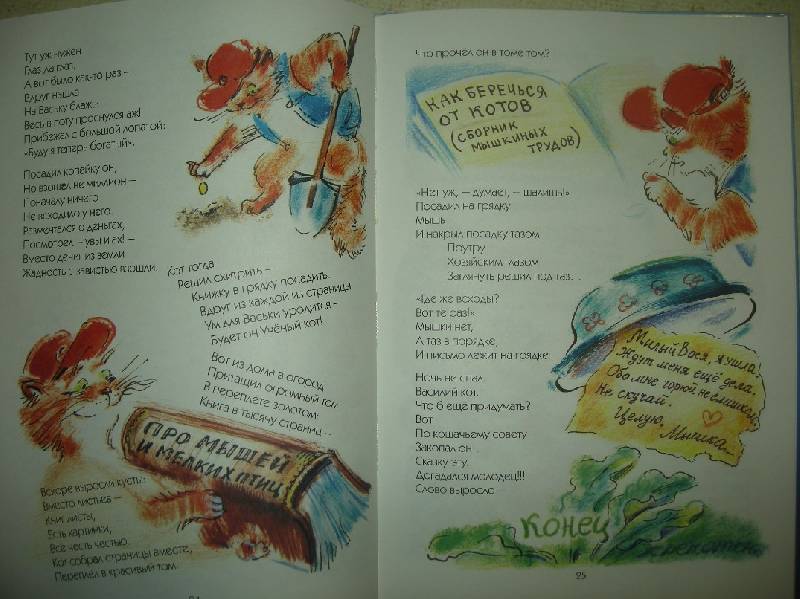 Тут уж нужен
Глаз да глаз,
А вот было как-то раз –
Вдруг нашла
На Ваську блажь:
Весь в поту проснулся аж!
Прибежал с большой лопатой:
«Буду я теперь богатый».
Посадил копейку он,
Но взошел не миллион –
Поначалу ничего
Не восходило у него.
Размечтался о деньгах,
Посмотрел – увы и ах! –
Вместо денег из земли
Жадность с завистью взошли.
Кот тогда
Решил схитрить –
Книжку в грядку посадить.
Вдруг из каждой из страниц
Ум для Васьки уродится –
Будет он Учёный кот!
Вот из дома в огород
Притащил огромный том
В переплете золотом:
Книга в тысячу страниц...
ПРО МЫШЕЙ
И МЕЛКИХ ПТИЦ
Вскоре выросли кусты:
Вместо листьев –
Книг листы,
Есть картинки,
Все честь честью.
Кот собрал страницы вместе,
Переплёл в красивый том.
24
Что прочёл он в томе том?
КАК БЕРЕЧЬСЯ
ОТ КОТОВ
(СБОРНИК
МЫШКИНЫХ
ТРУДОВ)
«Нет уж, – думает, – шалишь!»
Посадил на грядку
Мышь
И накрыл посадку тазом.
Поутру
Хозяйским глазом
Заглянуть решил под таз...
«Где же всходы?
Вот те раз!»
Мышки нет,
А таз в порядке,
И письмо лежит на грядке.
Милый Вася, я ушла!
Ждут меня ещё дела.
Обо мне горюй не слишком,
Не скучай.
Целую,
Мышка.
Ночь не спал
Василий кот.
Что б еще придумать?
Вот
По кошачьему совету
Закопал он...
Сказку эту.
Догадался молодец!!!
Слово выросло
КОНЕЦ
25